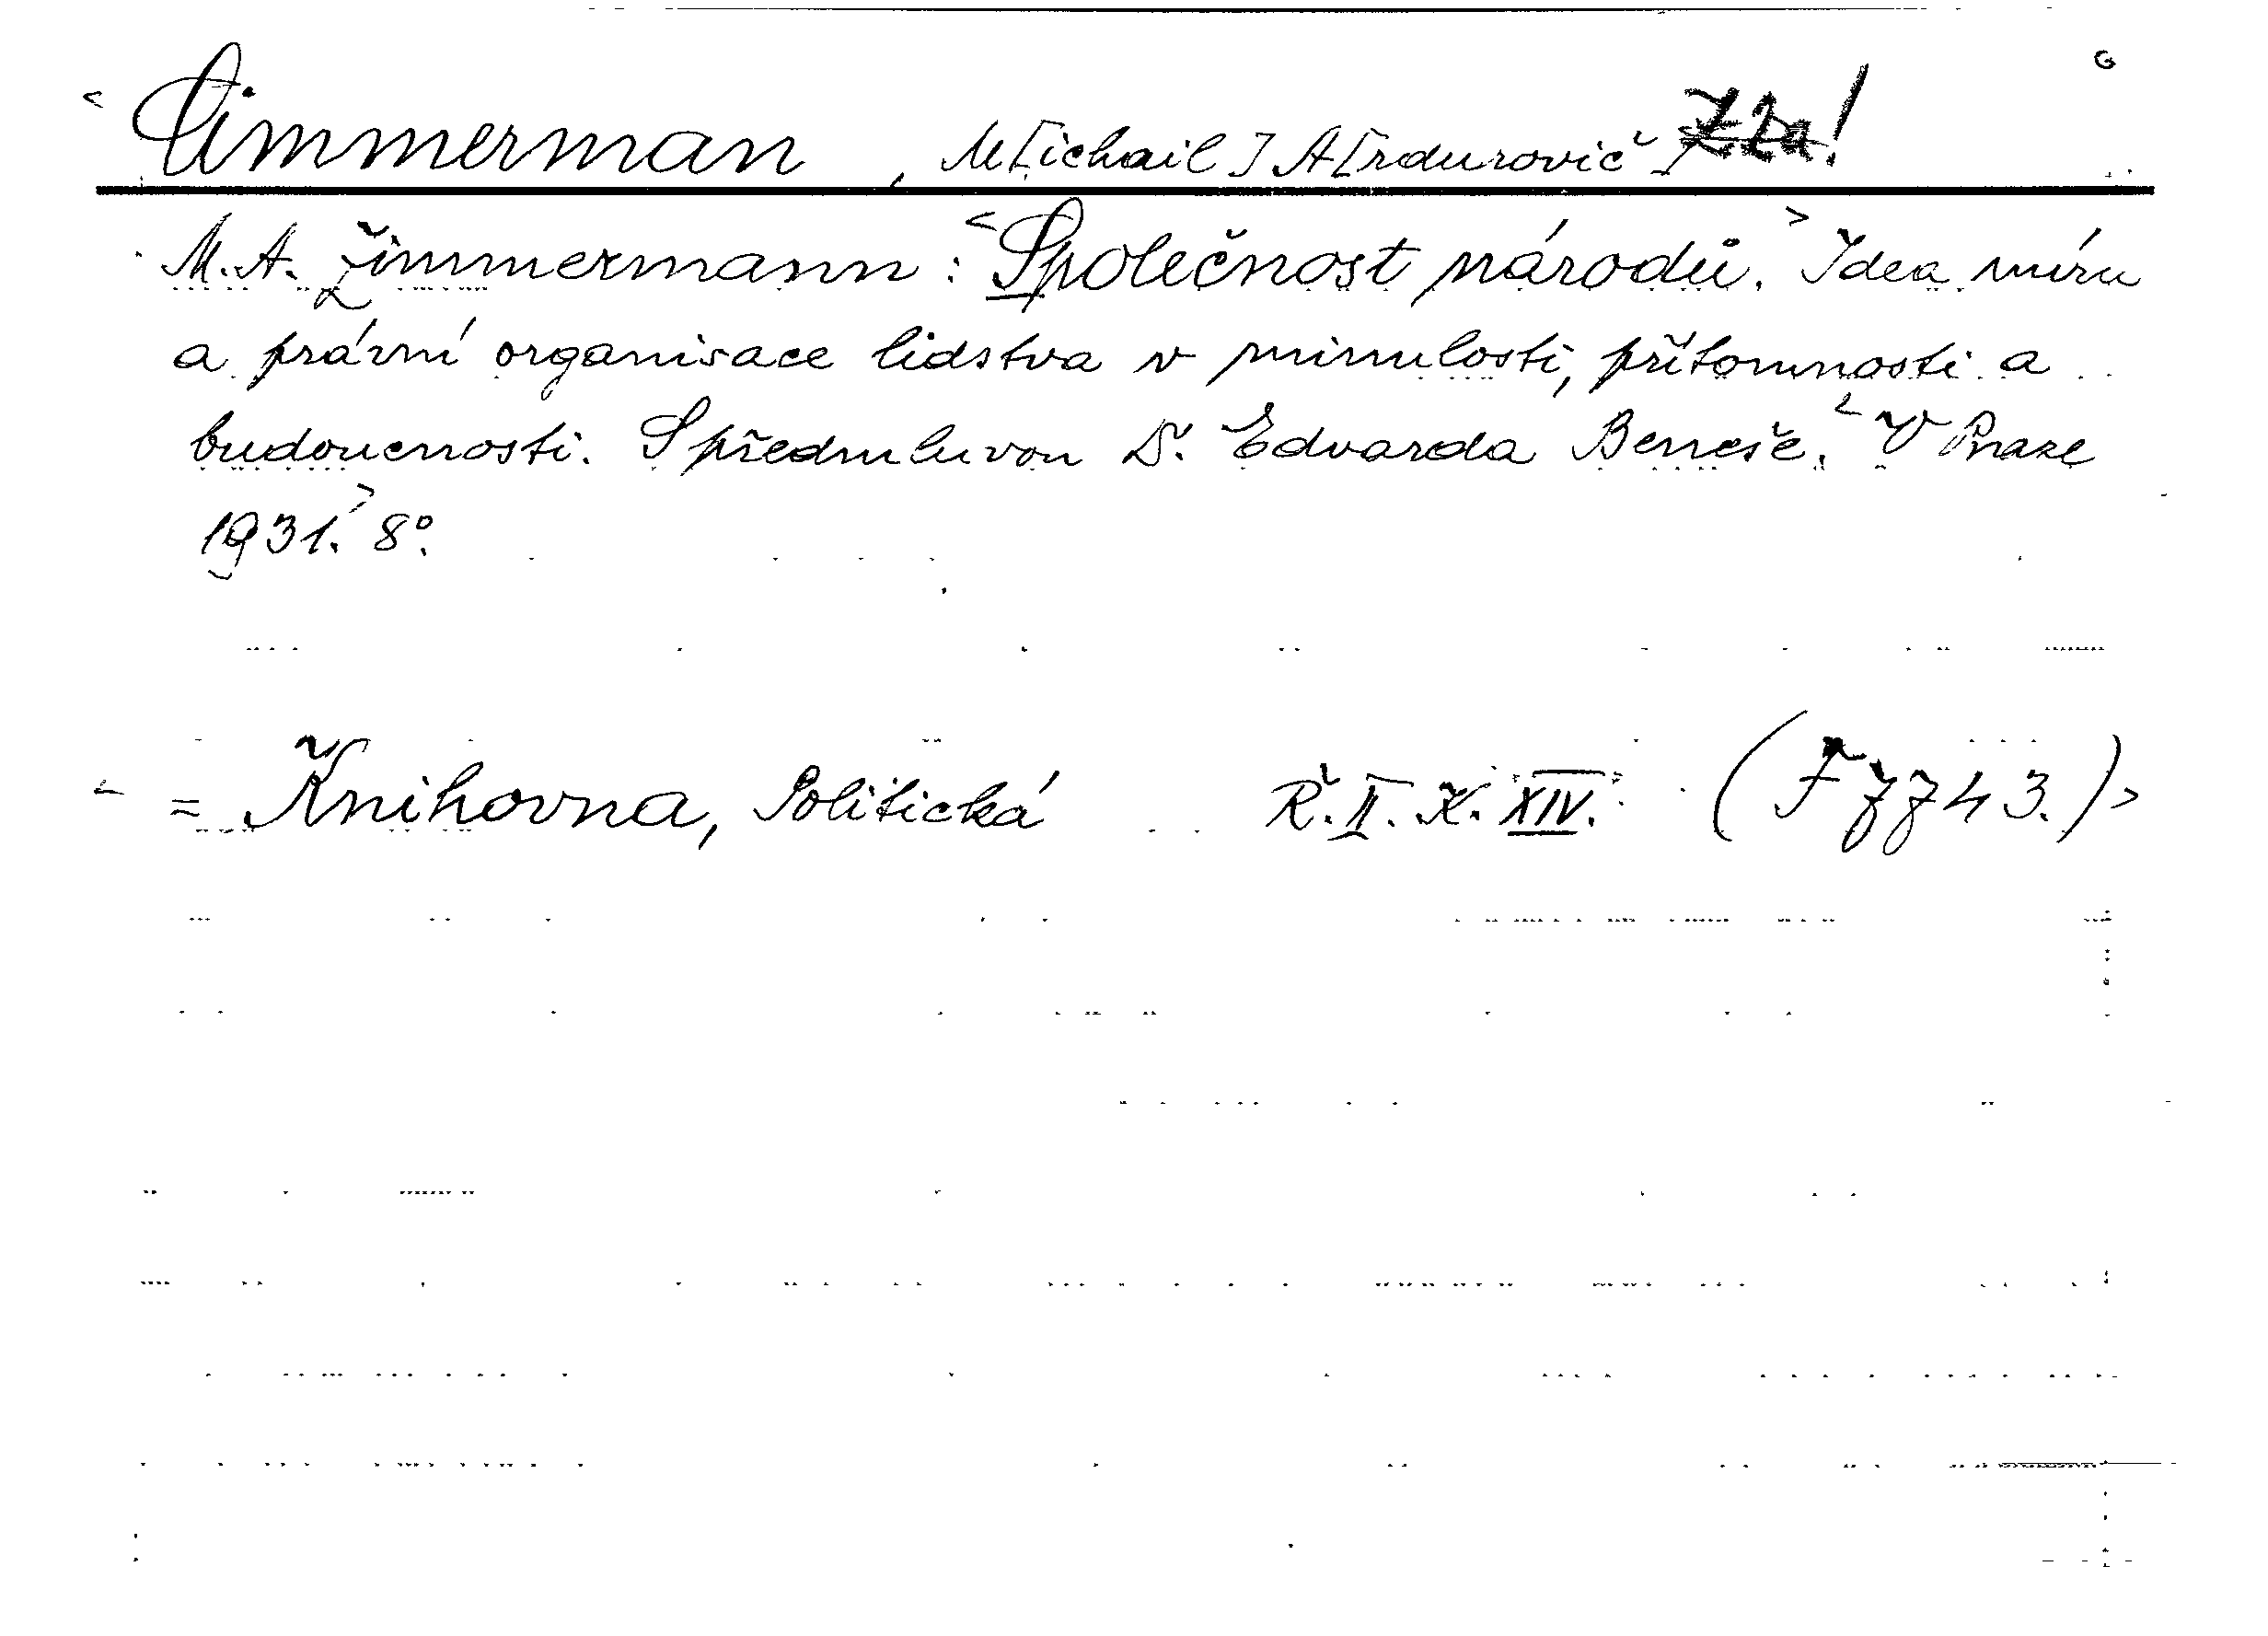 < Cimmerman, M[ichail] A[rdurovič]
M. A. Zimmermann: <Společnost národů.> Idea míru
a právní organisace lidstva v minulosti, přítomnosti a
budoucnosti. S předmluvou Dr. Edvarda Beneše. < V Praze
1931.> 8°.
< = Knihovna, Politická Ř. II. K. XIV. (F 7743.) >